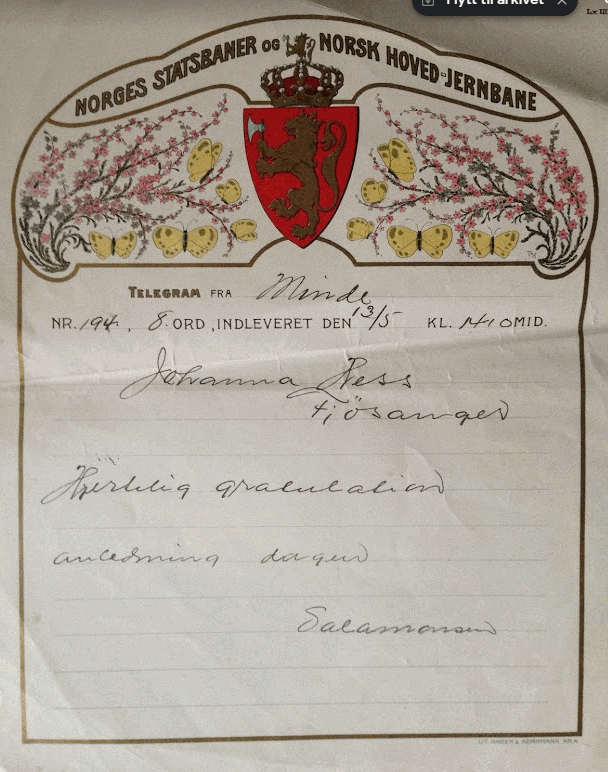 Flytt til arkivet
Lx III
NORGES STATSBANER OG NORSK HOVED-JERNBANE
TELEGRAM FRA Minde
NR. 194, 8 ORD, INDLEVERET DEN 13/5 KL. MID.
Johanna Hess
Fjösanger
Hjertelig gratulation
anledning dagen
Salamonsen